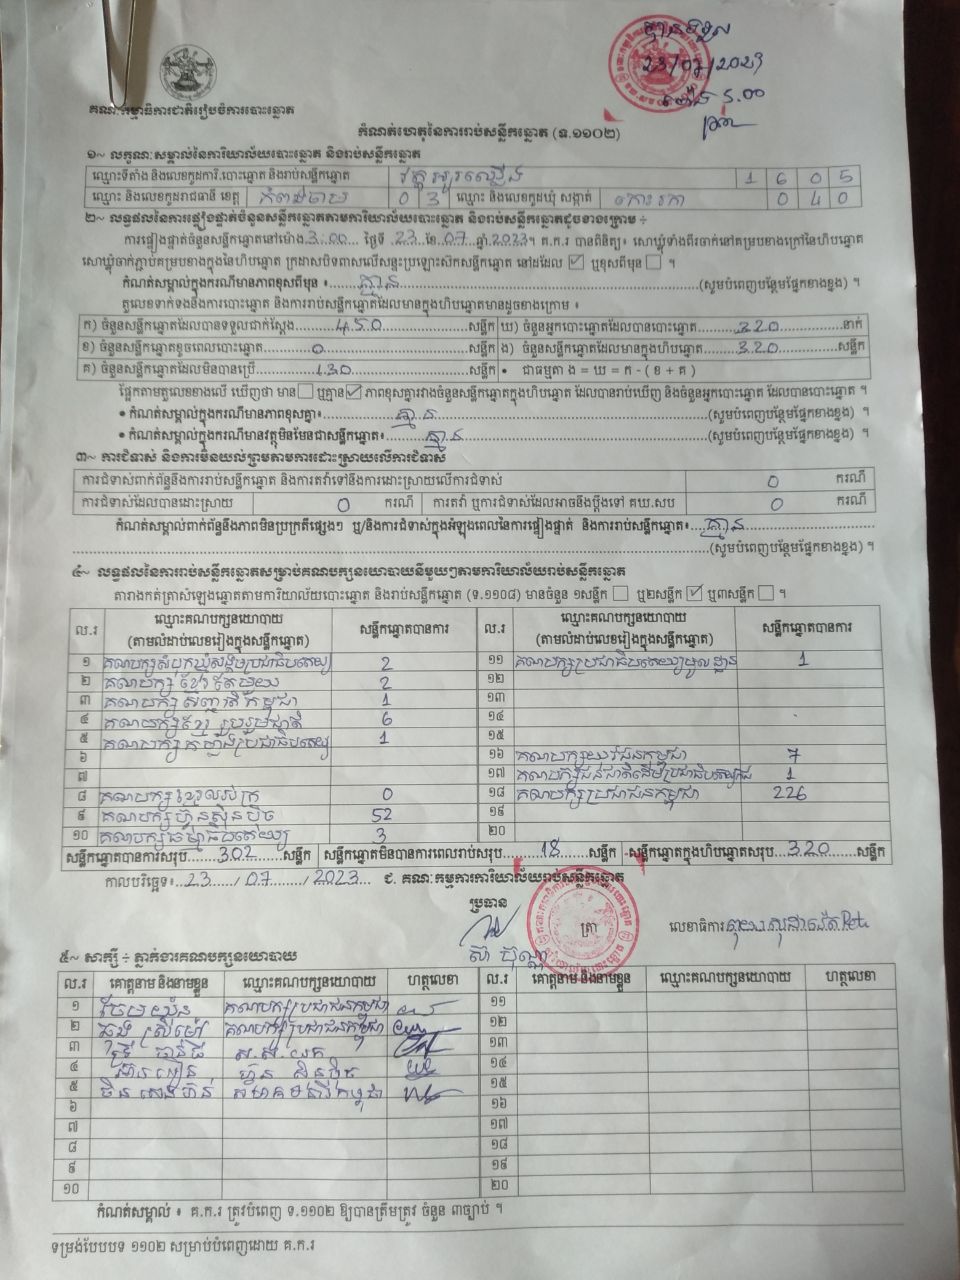 គណៈកម្មាធិការជាតិរៀបចំការបោះឆ្នោត
23/07/2023
ម៉ោង 5.00
កំណត់ហេតុនៃការរាប់សន្លឹកឆ្នោត (ទ.១១០២)
១~ លក្ខណៈសម្គាល់នៃការិយាល័យបោះឆ្នោត និងរាប់សន្លឹកឆ្នោត
ឈ្មោះទីតាំង និងលេខកូដការិ.បោះឆ្នោត និងរាប់សន្លឹកឆ្នោត វត្ត 1 6 0 5
ឈ្មោះ និងលេខកូដរាជធានី ខេត្ត កំពង់ចាម 0 3 ឈ្មោះ និងលេខកូដឃុំ សង្កាត់ កោះរកា 0 4 0
២~ លទ្ធផលនៃការផ្ទៀងផ្ទាត់ចំនួនសន្លឹកឆ្នោតតាមការិយាល័យបោះឆ្នោត និងរាប់សន្លឹកឆ្នោតដូចខាងក្រោម ÷
ការផ្ទៀងផ្ទាត់ចំនួនសន្លឹកឆ្នោតនៅម៉ោង 3:00 ថ្ងៃទី 23 ខែ 07 ឆ្នាំ 2023។ គ.ក.រ បានពិនិត្យ៖ សោឃ្លុំទាំងពីរចាក់នៅគម្របខាងក្រៅនៃហិបឆ្នោត
សោឃ្លុំចាក់ភ្ជាប់គម្របខាងក្នុងនៃហិបឆ្នោត ក្រដាសបិទពាសលើសន្ទះប្រឡោះស៊កសន្លឹកឆ្នោត នៅដដែល ☑ ឬខុសពីមុន ☐ ។
កំណត់សម្គាល់ក្នុងករណីមានភាពខុសពីមុន ៖ គ្មាន (សូមបំពេញបន្ថែមផ្នែកខាងខ្នង) ។
តួលេខទាក់ទងនឹងការបោះឆ្នោត និងការរាប់សន្លឹកឆ្នោតដែលមានក្នុងហិបឆ្នោតមានដូចខាងក្រោម ៖
ក) ចំនួនសន្លឹកឆ្នោតដែលបានទទួលជាក់ស្តែង 450 សន្លឹក ឃ) ចំនួនអ្នកបោះឆ្នោតដែលបានបោះឆ្នោត 320 នាក់
ខ) ចំនួនសន្លឹកឆ្នោតខូចពេលបោះឆ្នោត 0 សន្លឹក ង) ចំនួនសន្លឹកឆ្នោតដែលមានក្នុងហិបឆ្នោត 320 សន្លឹក
គ) ចំនួនសន្លឹកឆ្នោតដែលមិនបានប្រើ 130 សន្លឹក • ជាធម្មតា ង = ឃ = ក - ( ខ + គ )
ផ្អែកតាមតួលេខខាងលើ ឃើញថា មាន ☐ ឬគ្មាន ☑ ភាពខុសគ្នារវាងចំនួនសន្លឹកឆ្នោតក្នុងហិបឆ្នោត ដែលបានរាប់ឃើញ និងចំនួនអ្នកបោះឆ្នោត ដែលបានបោះឆ្នោត ។
• កំណត់សម្គាល់ក្នុងករណីមានភាពខុសគ្នា៖ គ្មាន (សូមបំពេញបន្ថែមផ្នែកខាងខ្នង) ។
• កំណត់សម្គាល់ក្នុងករណីមានវត្ថុមិនមែនជាសន្លឹកឆ្នោត៖ គ្មាន (សូមបំពេញបន្ថែមផ្នែកខាងខ្នង) ។
៣~ ការជំទាស់ និងការមិនយល់ព្រមតាមការដោះស្រាយលើការជំទាស់
ការជំទាស់ពាក់ព័ន្ធនឹងការរាប់សន្លឹកឆ្នោត និងការតវ៉ាទៅនឹងការដោះស្រាយលើការជំទាស់ 0 ករណី
ការជំទាស់ដែលបានដោះស្រាយ 0 ករណី ការតវ៉ា ឬការជំទាស់ដែលអាចនឹងប្តឹងទៅ គឃ.សប 0 ករណី
កំណត់សម្គាល់ពាក់ព័ន្ធនឹងភាពមិនប្រក្រតីផ្សេងៗ ឬ/និងការជំទាស់ក្នុងអំឡុងពេលនៃការផ្ទៀងផ្ទាត់ និងការរាប់សន្លឹកឆ្នោត៖ គ្មាន
(សូមបំពេញបន្ថែមផ្នែកខាងខ្នង) ។
៤~ លទ្ធផលនៃការរាប់សន្លឹកឆ្នោតសម្រាប់គណបក្សនយោបាយនីមួយៗតាមការិយាល័យរាប់សន្លឹកឆ្នោត
តារាងកត់ត្រាសំឡេងឆ្នោតតាមការិយាល័យបោះឆ្នោត និងរាប់សន្លឹកឆ្នោត (ទ.១១០៨) មានចំនួន ១សន្លឹក ☐ ឬ២សន្លឹក ☑ ឬ៣សន្លឹក ☐ ។
ល.រ ឈ្មោះគណបក្សនយោបាយ (តាមលំដាប់លេខរៀងក្នុងសន្លឹកឆ្នោត) សន្លឹកឆ្នោតបានការ ល.រ ឈ្មោះគណបក្សនយោបាយ (តាមលំដាប់លេខរៀងក្នុងសន្លឹកឆ្នោត) សន្លឹកឆ្នោតបានការ
១ គណបក្សសំបុកឃ្មុំសង្គមប្រជាធិបតេយ្យ 2 ១១ គណបក្សប្រជាធិបតេយ្យមូលដ្ឋាន 1
២ គណបក្សខ្មែរតែមួយ 2 ១២
៣ គណបក្សសញ្ជាតិកម្ពុជា 1 ១៣
៤ គណបក្សខ្មែររួបរួមជាតិ 6 ១៤
៥ គណបក្សកម្លាំងប្រជាធិបតេយ្យ 1 ១៥
៦ ១៦ គណបក្សយុវជនកម្ពុជា 7
៧ ១៧ គណបក្សជនជាតិដើមប្រជាធិបតេយ្យ 1
៨ គណបក្ស 0 ១៨ គណបក្សប្រជាជនកម្ពុជា 226
៩ គណបក្សហ៊្វុនស៊ិនប៉ិច 52 ១៩
១០ គណបក្សធម្មាធិបតេយ្យ 3 ២០
សន្លឹកឆ្នោតបានការសរុប 302 សន្លឹក សន្លឹកឆ្នោតមិនបានការពេលរាប់សរុប 18 សន្លឹក សន្លឹកឆ្នោតក្នុងហិបឆ្នោតសរុប 320 សន្លឹក
កាលបរិច្ឆេទ៖ 23 / 07 / 2023 ជ. គណៈកម្មការការិយាល័យរាប់សន្លឹកឆ្នោត
ប្រធាន
ត្រា
លេខាធិការ
៥~ សាក្សី ÷ ភ្នាក់ងារគណបក្សនយោបាយ
ល.រ គោត្តនាម និងនាមខ្លួន ឈ្មោះគណបក្សនយោបាយ ហត្ថលេខា ល.រ គោត្តនាម និងនាមខ្លួន ឈ្មោះគណបក្សនយោបាយ ហត្ថលេខា
១ គណបក្សប្រជាជនកម្ពុជា ១១
២ គណបក្សប្រជាជនកម្ពុជា ១២
៣ ស.ស.យ.ក ១៣
៤ ហ៊្វុនស៊ិនប៉ិច ១៤
៥ សមាគមនារីកម្ពុជា ១៥
៦ ១៦
៧ ១៧
៨ ១៨
៩ ១៩
១០ ២០
កំណត់សម្គាល់ ៖ គ.ក.រ ត្រូវបំពេញ ទ.១១០២ ឱ្យបានត្រឹមត្រូវ ចំនួន ៣ច្បាប់ ។
ទម្រង់បែបបទ ១១០២ សម្រាប់បំពេញដោយ គ.ក.រ